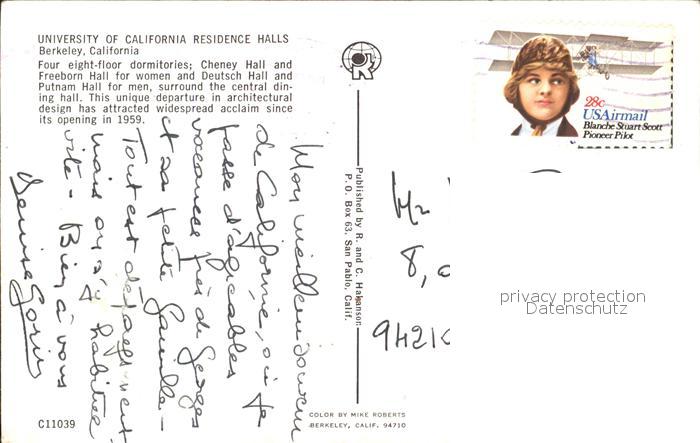 UNIVERSITY OF CALIFORNIA RESIDENCE HALLS
Berkeley, California
Four eight-floor dormitories; Cheney Hall and
Freeborn Hall for women and Deutsch Hall and
Putnam Hall for men, surround the central din-
ing hall. This unique departure in architectural
design has attracted widespread acclaim since
its opening in 1959.
Mon meilleur souvenir
de Californie, où je
passe d'agréables
vacances près de Georges
et sa petite famille -
Tout est
mais on s'y habitue
vite - Bien à vous
Denise
Published by R. and C. Hakanson
P. O. Box 63, San Pablo, Calif.
28c
USAirmail
Blanche Stuart Scott
Pioneer Pilot
8,
9421
privacy protection
Datenschutz
C11039
COLOR BY MIKE ROBERTS
BERKELEY, CALIF. 94710